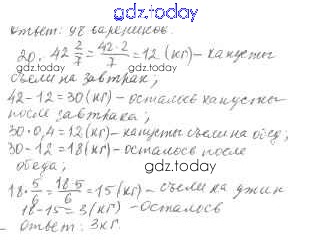 gdz.today
Ответ: 48 вареников.
20. 42 2/7 = 42·2/7 = 12 (кг) – капусты
gdz.today gdz.today
съели на завтрак;
42 – 12 = 30 (кг) – осталось капусты
после завтрака;
30 · 0,4 = 12 (кг) – капусты съели на обед;
30 – 12 = 18 (кг) – осталось после
обеда;
gdz.today
18 · 5/6 = 18·5/6 = 15 (кг) – съели на ужин
18 – 15 = 3 (кг) – осталось
Ответ: 3 кг.
gdz.today